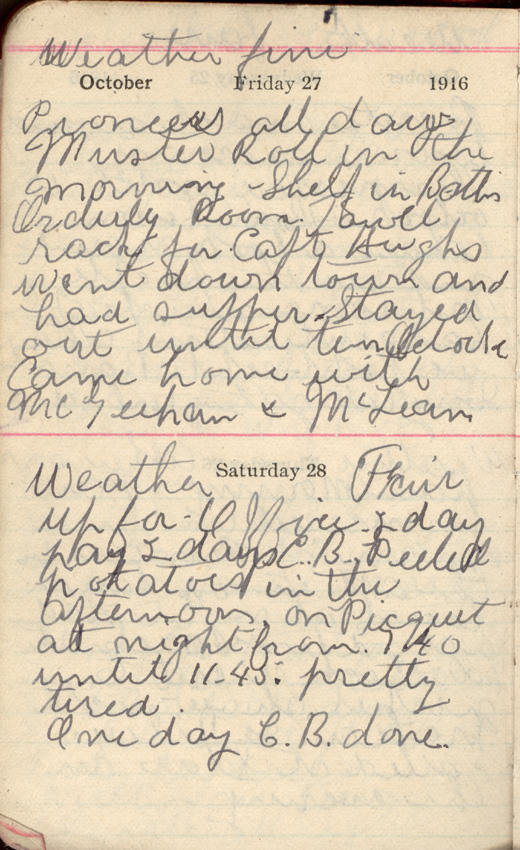 Weather fine
October Friday 27 1916
Pioneers all day
Muster Roll in the
morning - Shelf in Batts
Orderly Room. Towell
rack for Capt Hughs
went down town and
had supper. Stayed
out until ten Oclock
Came home with
McTeehan & McLean
Weather Saturday 28 Fair
up for Office 2 day
pay 2 days C.B. Peeled
potatoes in the
afternoon. on Picquet
at night from 7.40
until 11.45. pretty
tired.
One day C.B. done.